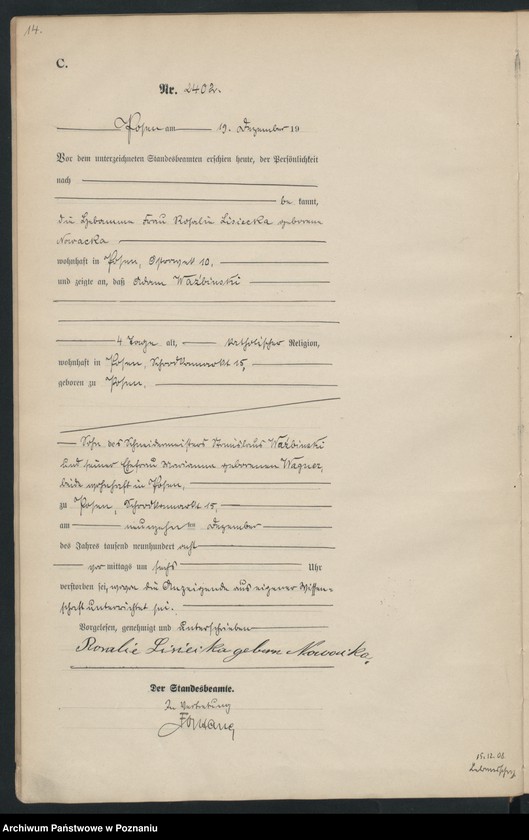 14.
C.
Nr. 2402.
Posen am 19. Dezember 19
Vor dem unterzeichneten Standesbeamten erschien heute, der Persönlichkeit
nach
be kannt,
die Hebamme Frau Rosalie Lisiecka geborene
Nowacka
wohnhaft in Posen, 10,
und zeigte an, daß Adam Ważbinski
4 Tage alt, katholischer Religion,
wohnhaft in Posen, 15,
geboren zu Posen.
Sohn des Schneidermeisters Stanislaus Ważbinski
und seiner Ehefrau Marianna geborenen Wagner,
beide wohnhaft in Posen,
zu Posen, 15,
am neunzehn ten Dezember
des Jahres tausend neunhundert acht
vor mittags um sechs Uhr
verstorben sei, wovon die Anzeigende aus eigener Wissen-
schaft unterrichtet sei.
Vorgelesen, genehmigt und unterschrieben
Rosalie Lisiecka geborne Nowacka,
Der Standesbeamte.
In Vertretung
15.12.08
Archiwum Państwowe w Poznaniu